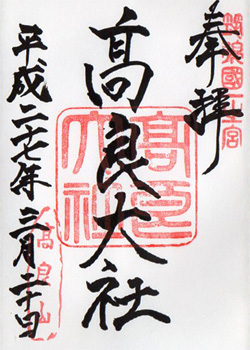 奉拝
筑後國一之宮
高良大社
髙良大社
平成二十七年三月二十日
高良山